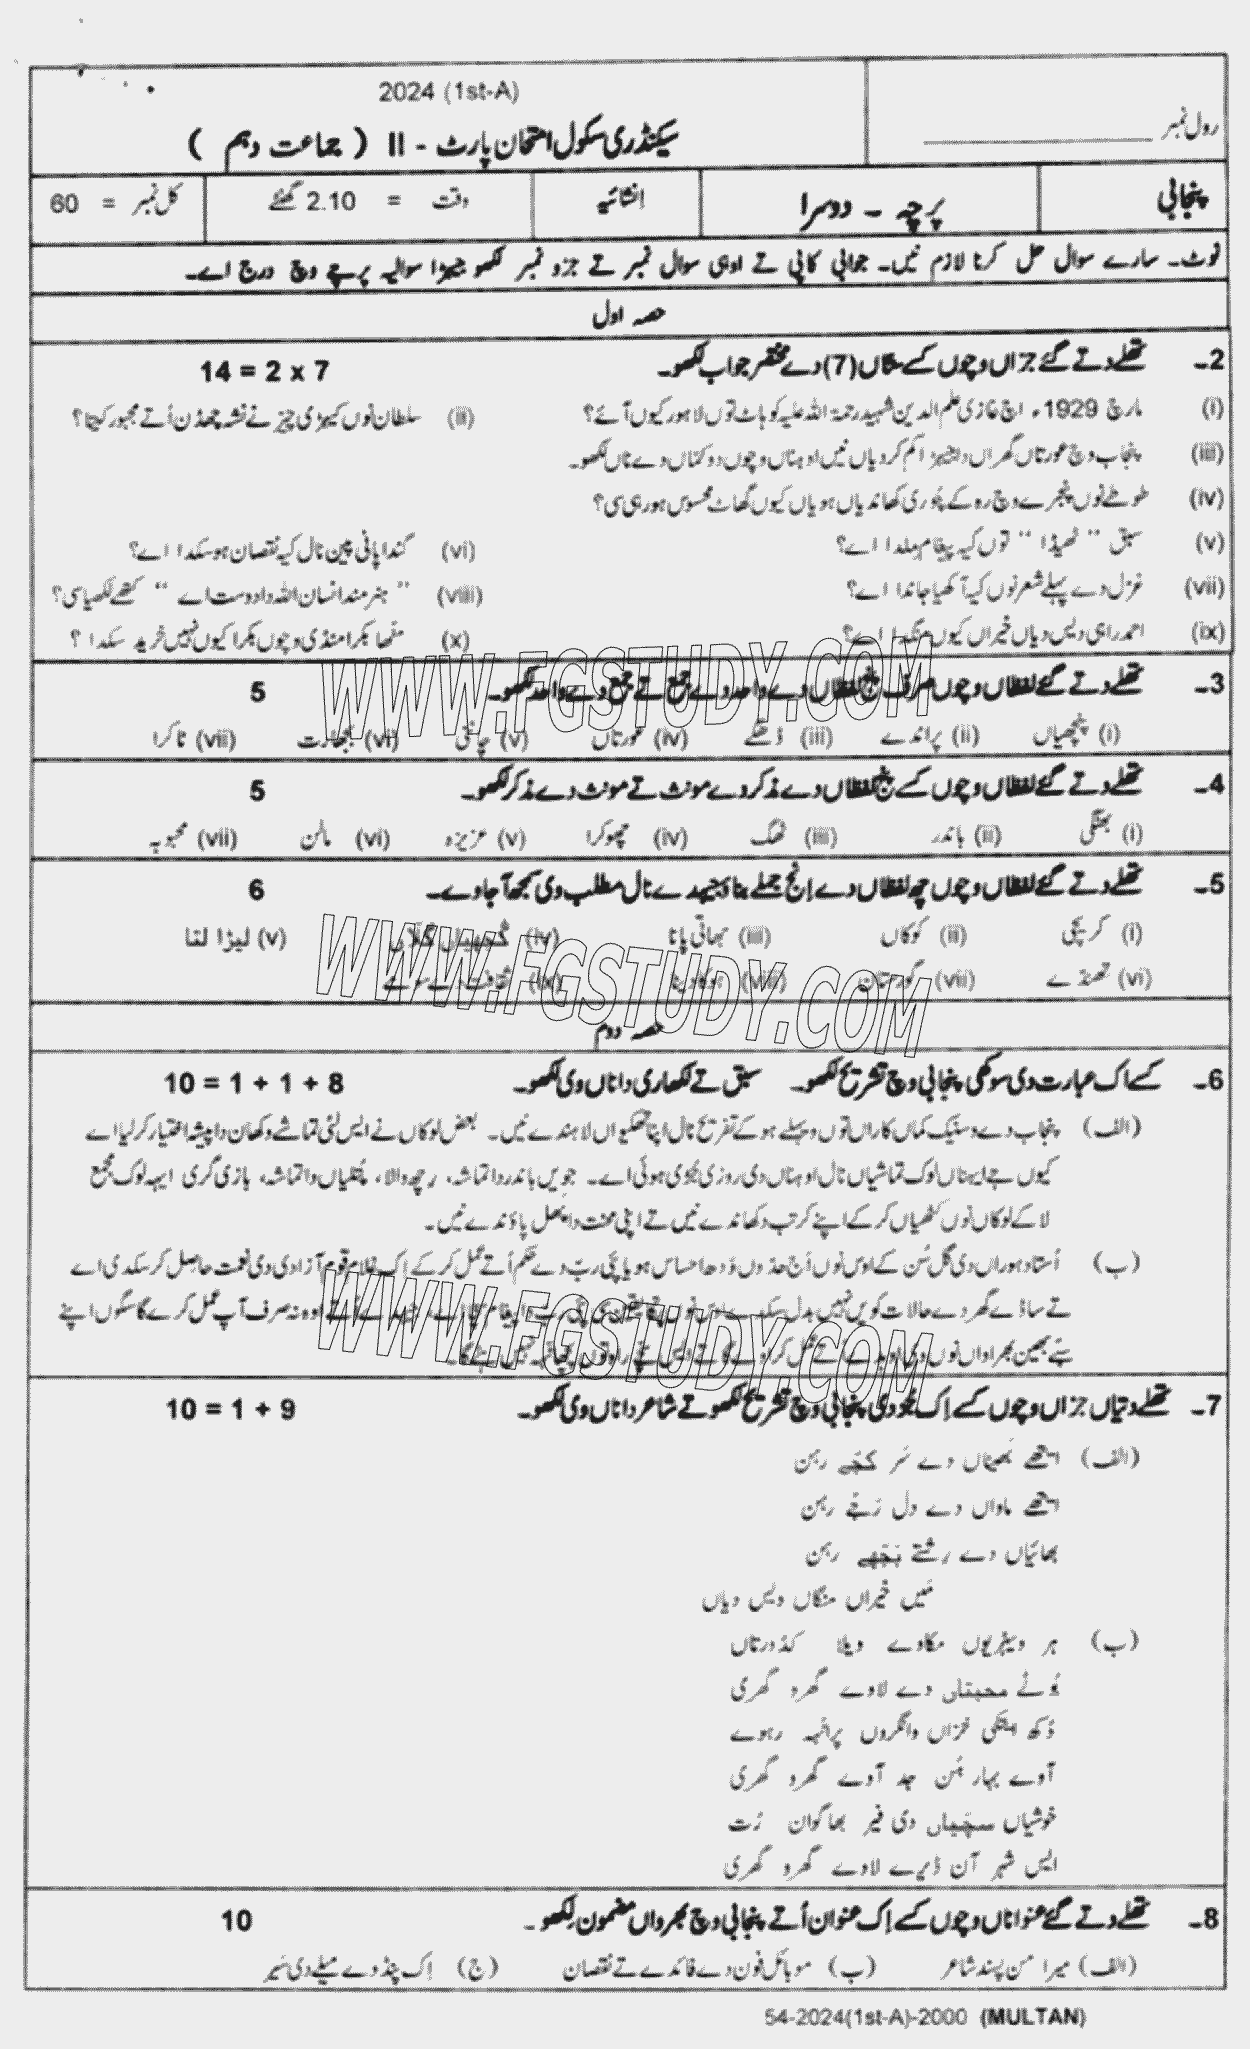 2024 (1st-A)
رول نمبر
سیکنڈری سکول امتحان پارٹ - II ( جماعت دہم )
پنجابی
پرچہ - دوسرا
انشائیہ
وقت = 2.10 گھنٹے
کل نمبر = 60
نوٹ۔ سارے سوال حل کرنا لازم نیں۔ جوابی کاپی تے اوہی سوال نمبر تے جزو نمبر لکھو جیہڑا سوالیہ پرچے وچ درج اے۔
حصہ اول
2۔ تھلے دتے گئے جزاں وچوں کسے ستاں (7) دے مختصر جواب لکھو۔ 14 = 2 x 7
(i) مارچ 1929ء اچ غازی علم الدین شہید رحمتہ اللہ علیہ کوہاٹ توں لاہور کیوں آئے؟ (ii) سلطان نوں کیہڑی چیز نے نشہ چھڈن اُتے مجبور کیتا؟
(iii) پنجاب وچ عورتاں گھراں دا جیہڑا کم کردیاں نیں اوہناں وچوں دو کماں دے ناں لکھو۔
(iv) طوطے نوں پنجرے وچ رہ کے چُوری کھاندیاں ہویاں کیوں گھاٹ محسوس ہو رہی سی؟
(v) سبق " ٹھیڈا " توں کیہ پیغام ملدا اے؟ (vi) گندا پانی پین نال کیہ نقصان ہو سکدا اے؟
(vii) غزل دے پہلے شعر نوں کیہ آکھیا جاندا اے؟ (viii) " ہنرمند انسان اللہ دا دوست اے " کتھے لکھیا سی؟
(ix) احمد راہی دیس دیاں خیراں کیوں منگدا اے؟ (x) مٹھا بکرا منڈی وچوں بکرا کیوں نہیں خرید سکدا ؟
3۔ تھلے دتے گئے لفظاں وچوں صرف پنج لفظاں دے واحد دے جمع تے جمع دے واحد لکھو۔ 5
(i) پنچھیاں (ii) پراندے (iii) (iv) عورتاں (v) چاٹی (vi) بجھارت (vii) ٹاکرا
4۔ تھلے دتے گئے لفظاں وچوں کسے پنج لفظاں دے مذکر دے مونث تے مونث دے مذکر لکھو۔ 5
(i) بھنگی (ii) باندر (iii) ٹھگ (iv) چھوکرا (v) عزیزہ (vi) مالن (vii) محبوبہ
5۔ تھلے دتے گئے لفظاں وچوں چھ لفظاں دے اِنج جملے بناؤ جیہدے نال مطلب وی سمجھ آ جاوے۔ 6
(i) (ii) کوکاں (iii) بھاتی پانا (iv) (v)
(vi) (vii) گورستان (viii) ہوکا دینا (ix)
حصہ دوم
6۔ کسے اک عبارت دی سوکھی پنجابی وچ تشریح لکھو۔ سبق تے لکھاری دا ناں وی لکھو۔ 10 = 1 + 1 + 8
(الف) پنجاب دے وسنیک کماں کاراں توں ویہلے ہو کے تفریح نال اپنا تھکیواں لاہندے نیں۔ بعض لوکاں نے ایس لئی تماشے وکھان دا پیشہ اختیار کر لیا اے
کیوں جے ایہناں لوک تماشیاں نال اوہناں دی روزی بجھی ہوئی اے۔ جویں باندر دا تماشہ، رچھ والا، پتلیاں دا تماشہ، بازی گری ایہہ لوک مجمع
لا کے لوکاں نوں کٹھیاں کر کے اپنے کرتب دکھاندے نیں تے اپنی محنت دا پھل پاؤندے نیں۔
(ب) اُستاد ہوراں دی گل سُن کے اوس نوں اَج حدوں وَدھ احساس ہویا پئی ربّ دے حکم اُتے عمل کر کے اِک غلام قوم آزادی دی نعمت حاصِل کر سکدی اے
تے ساڈے گھر دے حالات کویں نہیں بدل سکدے اوہ نہ صرف آپ عمل کرے گا سگوں اپنے
7۔ تھلے دتیاں جزاں وچوں کسے اِک جُز دی پنجابی وچ تشریح لکھو تے شاعر دا ناں وی لکھو۔ 10 = 1 + 9
(الف) ایتھے بَھیناں دے سَر کجّے رہن
ایتھے ماواں دے دل رَجّے رہن
بھائیاں دے رشتے بَجّھے رہن
مَیں خیراں منگاں دیس دیاں
(ب) ہر ویہڑیوں مکاوے ویلا کدورتاں
بُوٹے محبتاں دے لاوے گھرو گھری
دُکھ ایتکی خزاں وانگروں پرانہہ رہوے
آوے بہار ہُن جد آوے گھرو گھری
خوشیاں سچّیاں دی فیر بھاگوان رُت
ایس شہر آن ڈیرے لاوے گھرو گھری
8۔ تھلے دتے گئے عنواناں وچوں کسے اِک عنوان اُتے پنجابی وچ بھرواں مضمون لِکھو۔ 10
(الف) میرا من پسند شاعر (ب) موبائل فون دے فائدے تے نقصان (ج) اِک پنڈ دے میلے دی سَیر
54-2024(1st-A)-2000 (MULTAN)
WWW.FGSTUDY.COM
WWW.FGSTUDY.COM
WWW.FGSTUDY.COM